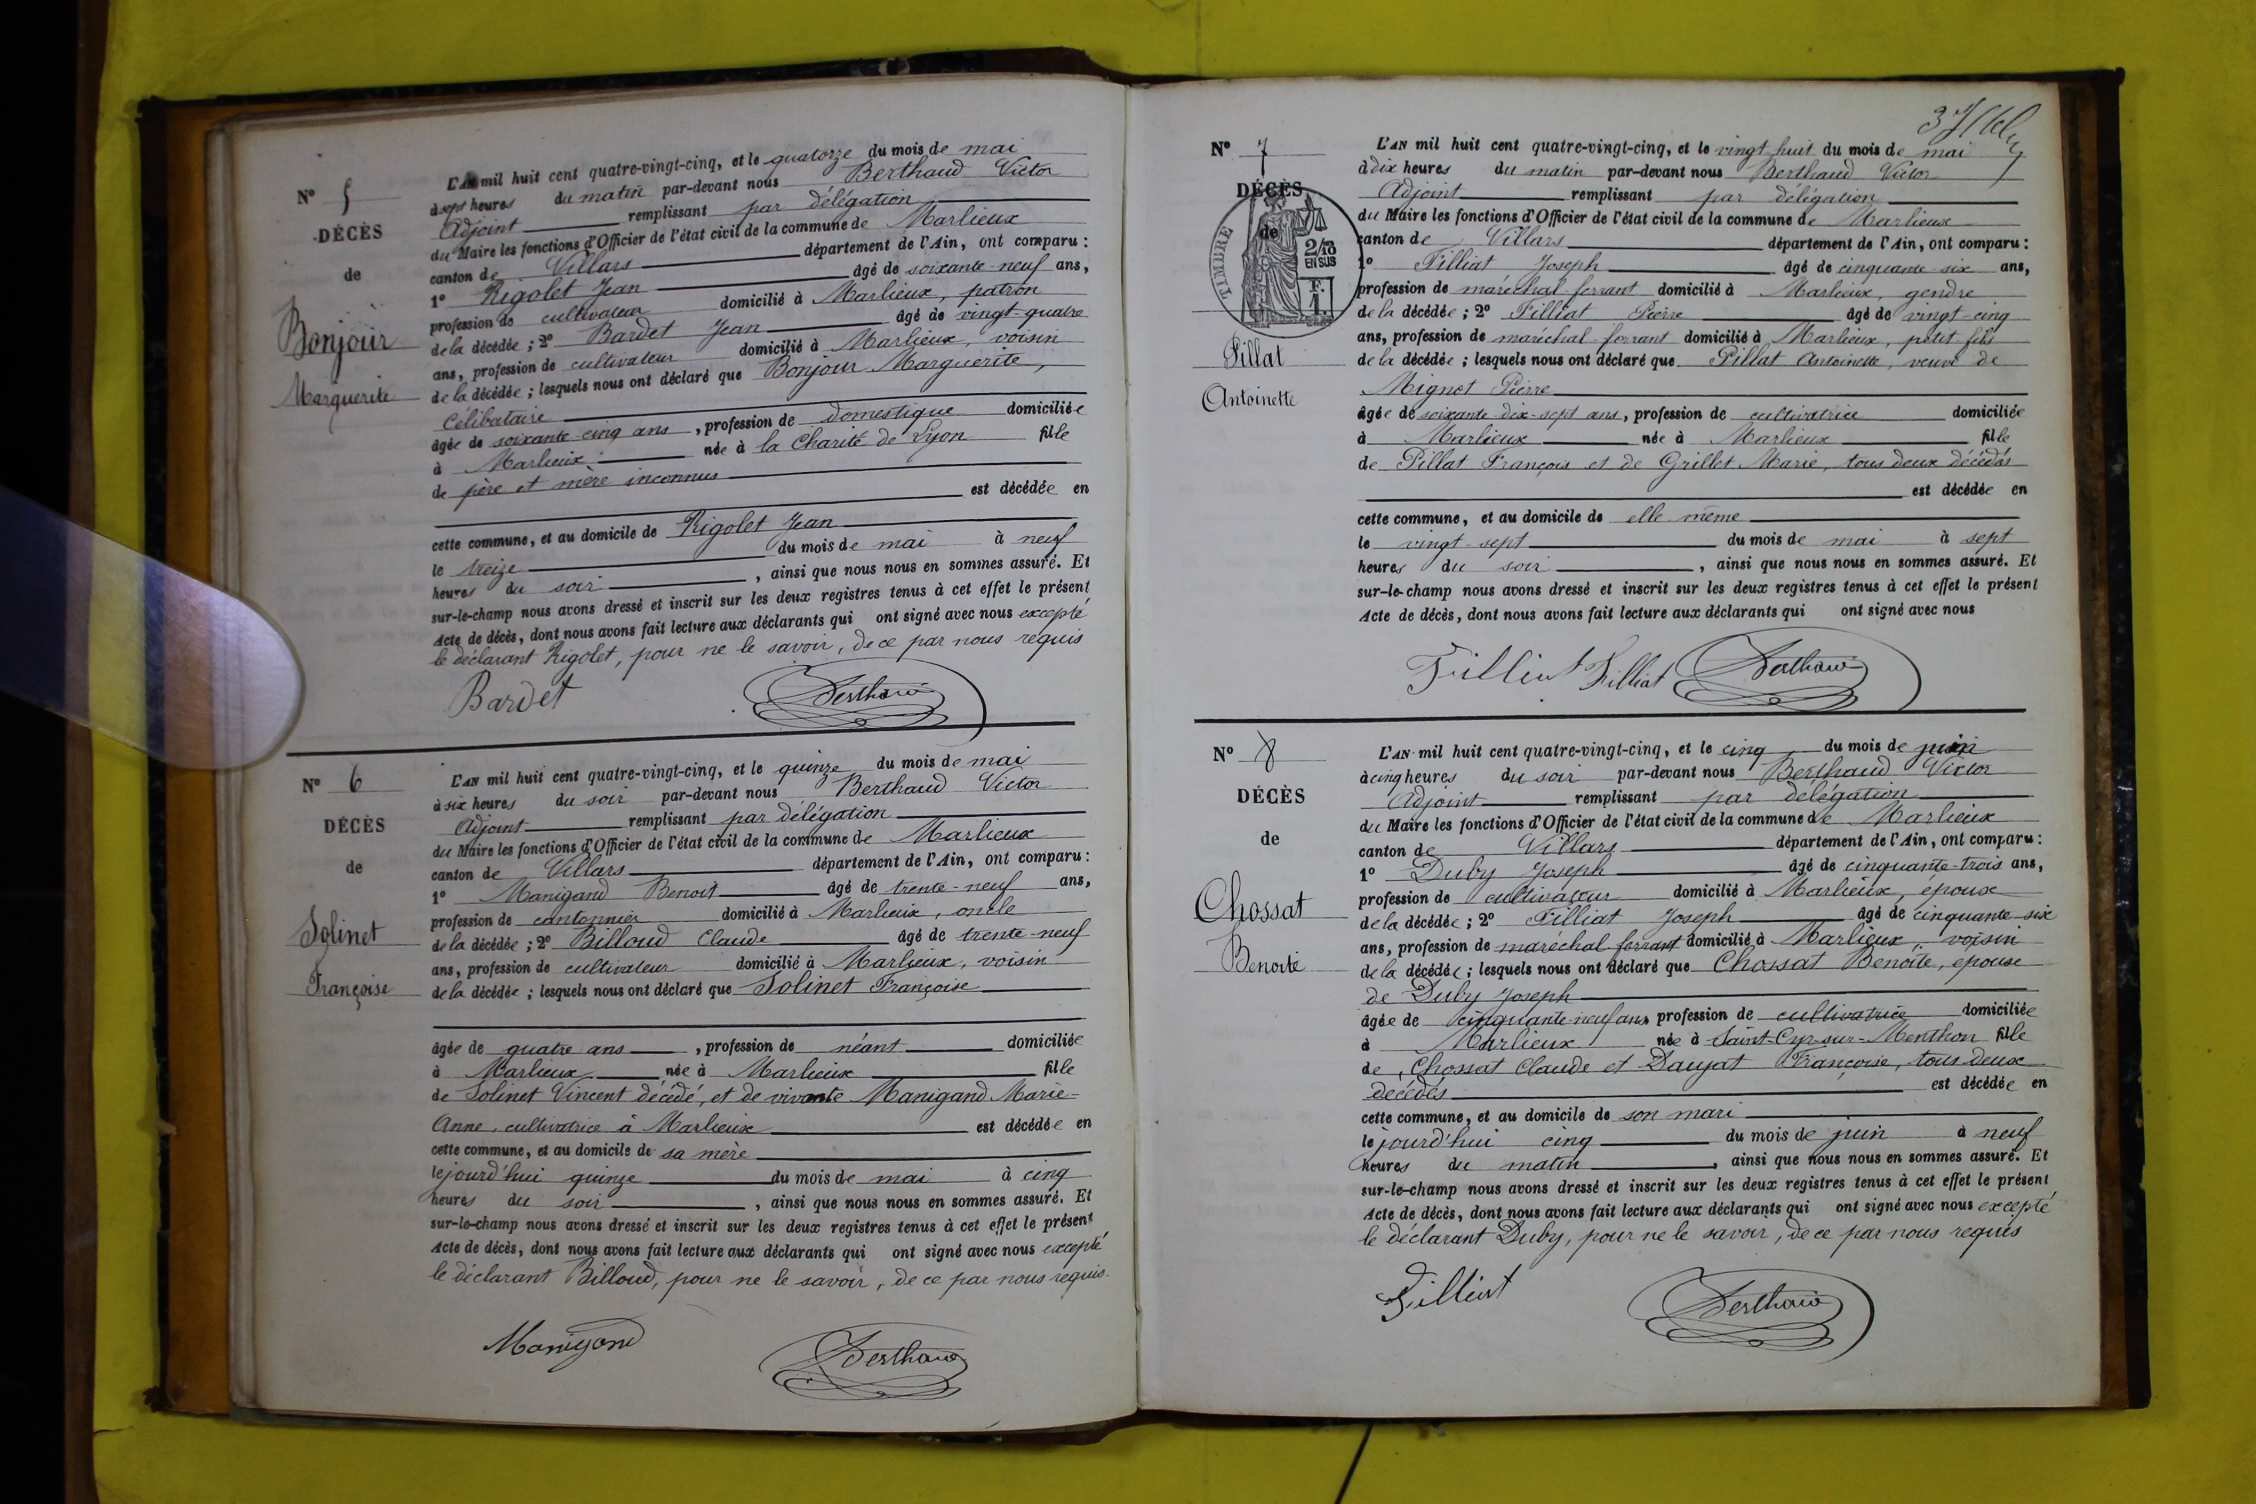 N° 5
DÉCÈS
de
Bonjour
Marguerite
L'AN mil huit cent quatre-vingt-cinq, et le quatorze du mois de mai
à sept heures du matin par-devant nous Berthaud Victor
Adjoint remplissant par délégation
du Maire les fonctions d'Officier de l'état civil de la commune de Marlieux
canton de Villars département de l'Ain, ont comparu :
1° Rigolet Jean âgé de soixante-neuf ans,
profession de cultivateur domicilié à Marlieux, patron
de la décédée ; 2° Bardet Jean âgé de vingt-quatre
ans, profession de cultivateur domicilié à Marlieux, voisin
de la décédée ; lesquels nous ont déclaré que Bonjour Marguerite,
célibataire
âgée de soixante-cinq ans, profession de domestique domiciliée
à Marlieux née à la Charité de Lyon fille
de père et mère inconnus
est décédée en
cette commune, et au domicile de Rigolet Jean
le treize du mois de mai à neuf
heures du soir, ainsi que nous nous en sommes assuré. Et
sur-le-champ nous avons dressé et inscrit sur les deux registres tenus à cet effet le présent
Acte de décès, dont nous avons fait lecture aux déclarants qui ont signé avec nous excepté
le déclarant Rigolet, pour ne le savoir, de ce par nous requis
Bardet Berthaud
N° 6
DÉCÈS
de
Solinet
Françoise
L'AN mil huit cent quatre-vingt-cinq, et le quinze du mois de mai
à six heures du soir par-devant nous Berthaud Victor
Adjoint remplissant par délégation
du Maire les fonctions d'Officier de l'état civil de la commune de Marlieux
canton de Villars département de l'Ain, ont comparu :
1° Manigand Benoit âgé de trente-neuf ans,
profession de cantonnier domicilié à Marlieux, oncle
de la décédée ; 2° Billoud Claude âgé de trente-neuf
ans, profession de cultivateur domicilié à Marlieux, voisin
de la décédée ; lesquels nous ont déclaré que Solinet Françoise
âgée de quatre ans, profession de néant domiciliée
à Marlieux née à Marlieux fille
de Solinet Vincent décédé, et de vivante Manigand Marie-
Anne, cultivatrice à Marlieux est décédée en
cette commune, et au domicile de sa mère
le jourd'hui quinze du mois de mai à cinq
heures du soir, ainsi que nous nous en sommes assuré. Et
sur-le-champ nous avons dressé et inscrit sur les deux registres tenus à cet effet le présent
Acte de décès, dont nous avons fait lecture aux déclarants qui ont signé avec nous excepté
le déclarant Billoud, pour ne le savoir, de ce par nous requis.
Manigand Berthaud
N° 7
DÉCÈS
de
TIMBRE
2/10
EN SUS
F.
1.
Pillat
Antoinette
L'AN mil huit cent quatre-vingt-cinq, et le vingt huit du mois de mai
à dix heures du matin par-devant nous Berthaud Victor
Adjoint remplissant par délégation
du Maire les fonctions d'Officier de l'état civil de la commune de Marlieux
canton de Villars département de l'Ain, ont comparu :
1° Filliat Joseph âgé de cinquante-six ans,
profession de maréchal-ferrant domicilié à Marlieux, gendre
de la décédée ; 2° Filliat Pierre âgé de vingt-cinq
ans, profession de maréchal-ferrant domicilié à Marlieux, petit fils
de la décédée ; lesquels nous ont déclaré que Pillat Antoinette, veuve de
Mignot Pierre
âgée de soixante-dix-sept ans, profession de cultivatrice domiciliée
à Marlieux née à Marlieux fille
de Pillat François et de Grillet Marie, tous deux décédés
est décédée en
cette commune, et au domicile de elle même
le vingt-sept du mois de mai à sept
heures du soir, ainsi que nous nous en sommes assuré. Et
sur-le-champ nous avons dressé et inscrit sur les deux registres tenus à cet effet le présent
Acte de décès, dont nous avons fait lecture aux déclarants qui ont signé avec nous
Filliat Filliat Berthaud
N° 8
DÉCÈS
de
Chossat
Benoite
L'AN mil huit cent quatre-vingt-cinq, et le cinq du mois de juin
à cinq heures du soir par-devant nous Berthaud Victor
Adjoint remplissant par délégation
du Maire les fonctions d'Officier de l'état civil de la commune de Marlieux
canton de Villars département de l'Ain, ont comparu :
1° Duby Joseph âgé de cinquante-trois ans,
profession de cultivateur domicilié à Marlieux, époux
de la décédée ; 2° Filliat Joseph âgé de cinquante-six
ans, profession de maréchal ferrant domicilié à Marlieux, voisin
de la décédée ; lesquels nous ont déclaré que Chossat Benoîte, épouse
de Duby Joseph
âgée de cinquante-neuf ans profession de cultivatrice domiciliée
à Marlieux née à Saint-Cyr-sur-Menthon fille
de Chossat Claude et Daujat Françoise, tous deux
décédés est décédée en
cette commune, et au domicile de son mari
le jourd'hui cinq du mois de juin à neuf
heures du matin, ainsi que nous nous en sommes assuré. Et
sur-le-champ nous avons dressé et inscrit sur les deux registres tenus à cet effet le présent
Acte de décès, dont nous avons fait lecture aux déclarants qui ont signé avec nous excepté
le déclarant Duby, pour ne le savoir, de ce par nous requis
Filliat Berthaud